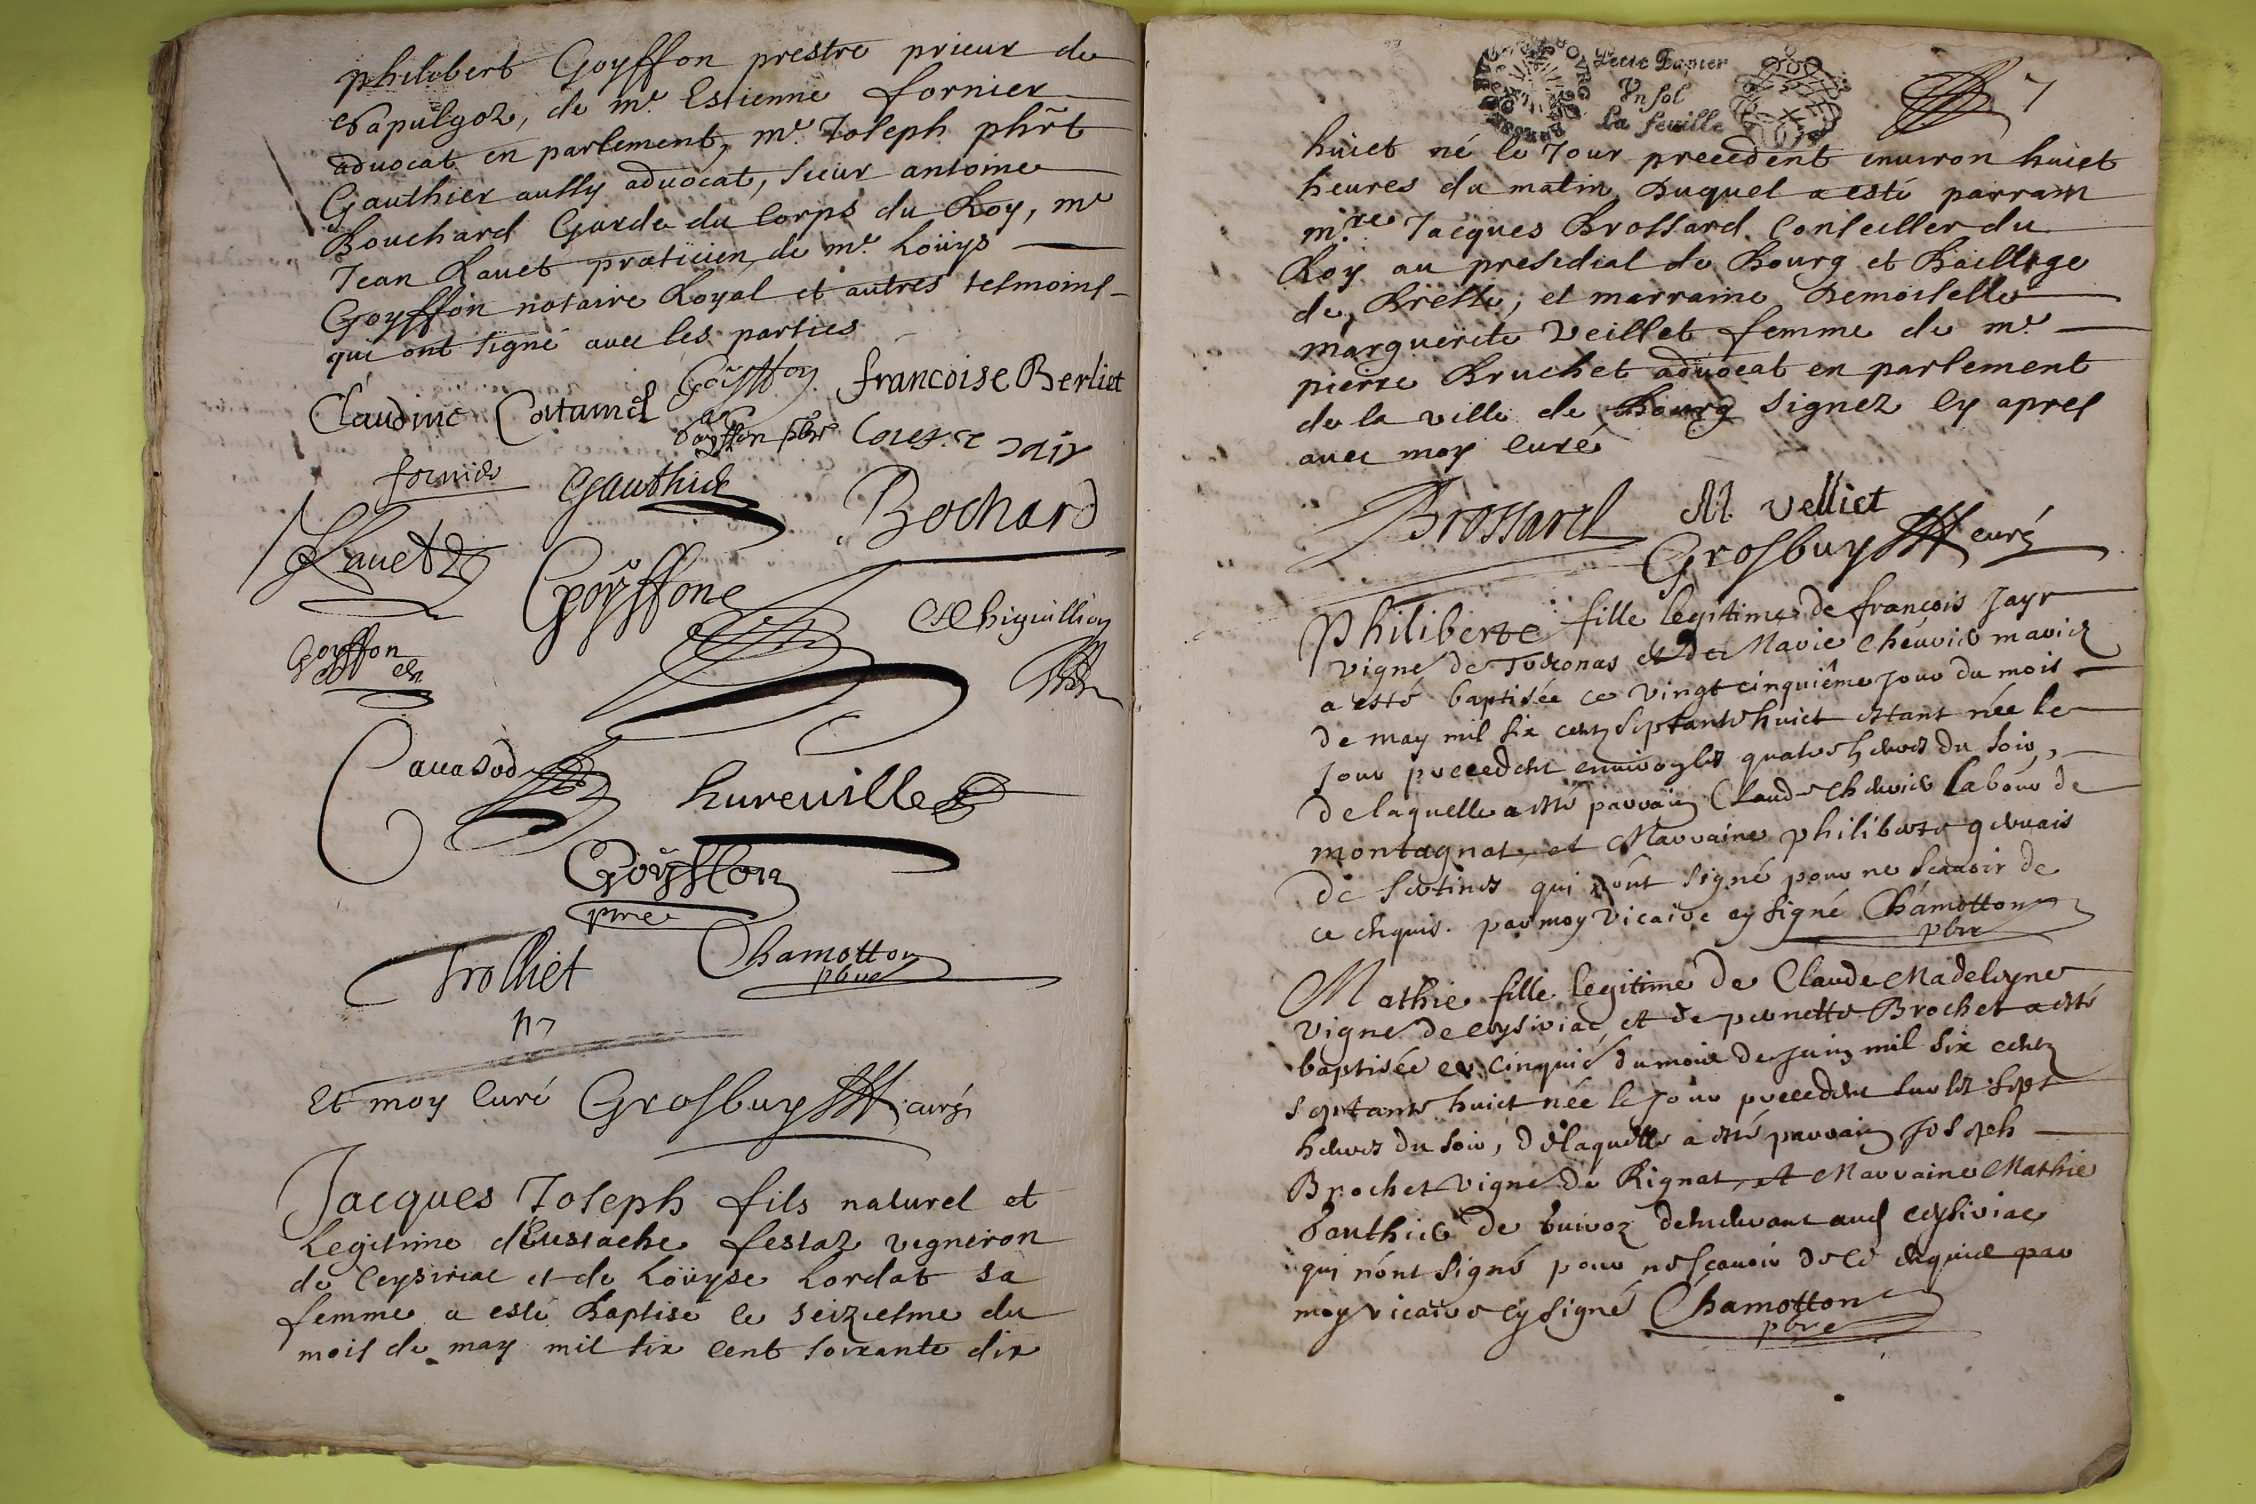 philibert Goyffon prestre prieur de
de me Estienne fornier
advocat en parlement, me Joseph phrt
Gauthier aussy advocat, sieur antoine
Bouchard Garde du Corps du Roy, me
Jean Ravet praticien, de me Loüys
Goyffon notaire Royal et autres tesmoins
qui ont signé avec les parties
Goÿffon francoise Berliet
Claudine
Goyffon
fornier Gauthier Bochard
Ravet
Goyffon
Goyffon
Cavasod hureville
Goyffon
pbre
Trolliet Chamotton
pbre
Et moy Curé Grosbuy curé
Jacques Joseph fils naturel et
Legitime d'Eustache festaz vigneron
de Ceysiriac et de Loüyse Lordat sa
femme a esté Baptisé le seiziesme du
mois de may mil six cent soixante dix
Petit Papier
Vn sol
La feuille
7
huict né le Jour precedent environ huict
heures du matin Duquel a esté parrain
m.re Jacques Brossard Conseiller du
Roy au presidial de Bourg et Bailliage
de Bresse, et marraine Demoiselle
marguerite Veillet femme de me
pierre Bruchet advocat en parlement
de la ville de Bourg signez Cy apres
avec moy Curé
Brossard M velliet
Grosbuy curé
Philiberte fille legitime de françois Jayr
vigne de et de Marie Chevrier mariez
a esté baptisée ce vingt cinquiême jour du mois
de may mil six cent septante huict estant née le
jour precedent environ les quatre heures du soir,
de laquelle a esté parrain Claude Chevrier labour de
montagnat, et Marraine philiberte gervais
de qui n'ont signé pour ne scavoir de
ce enquis. par moy vicaire cy signé Chamotton
pbre
Mathie fille legitime de Claude Madeleyne
vigne de ceysiriac et de pernette Brochet a esté
baptisée ce cinquié du mois de juin mil six cent
septante huict née le jour precedent sur les sept
heures du soir, de laquelle a esté parrain Joseph
Brochet vigne de Rignat, et Marraine Mathie
Gauthier de demeurant aud ceysiriac
qui n'ont signé pour ne scavoir de ce enquis par
moy vicaire cy signé Chamotton
pbre